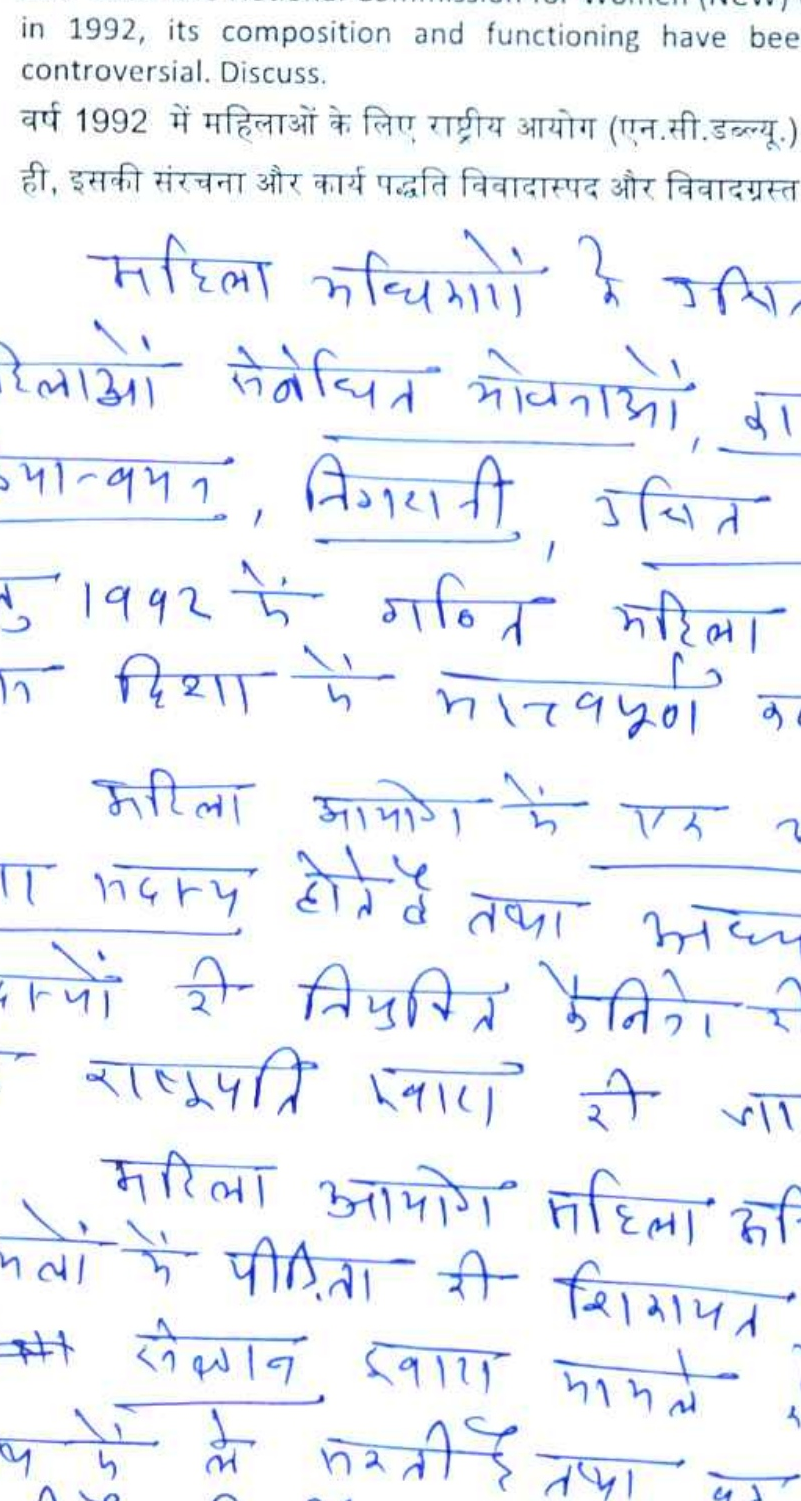 in 1992, its composition and functioning have bee
controversial. Discuss.
वर्ष 1992 में महिलाओं के लिए राष्ट्रीय आयोग (एन.सी.डब्ल्यू.)
ही, इसकी संरचना और कार्य पद्धति विवादास्पद और विवादग्रस्त
महिला अधिकारों के उचित
महिलाओं संबंधित योजनाओं, का
, निगरानी, उचित
1992 में गठित महिला
दिशा में महत्वपूर्ण
महिला आयोग में एक
सदस्य होते है तथा अध्य
की नियुक्ति कैबिनेट की
राष्ट्रपति द्वारा की जा
महिला आयोग महिला
में पीड़िता की शिकायत
संज्ञान द्वारा मामले
में ले सकती है तथा